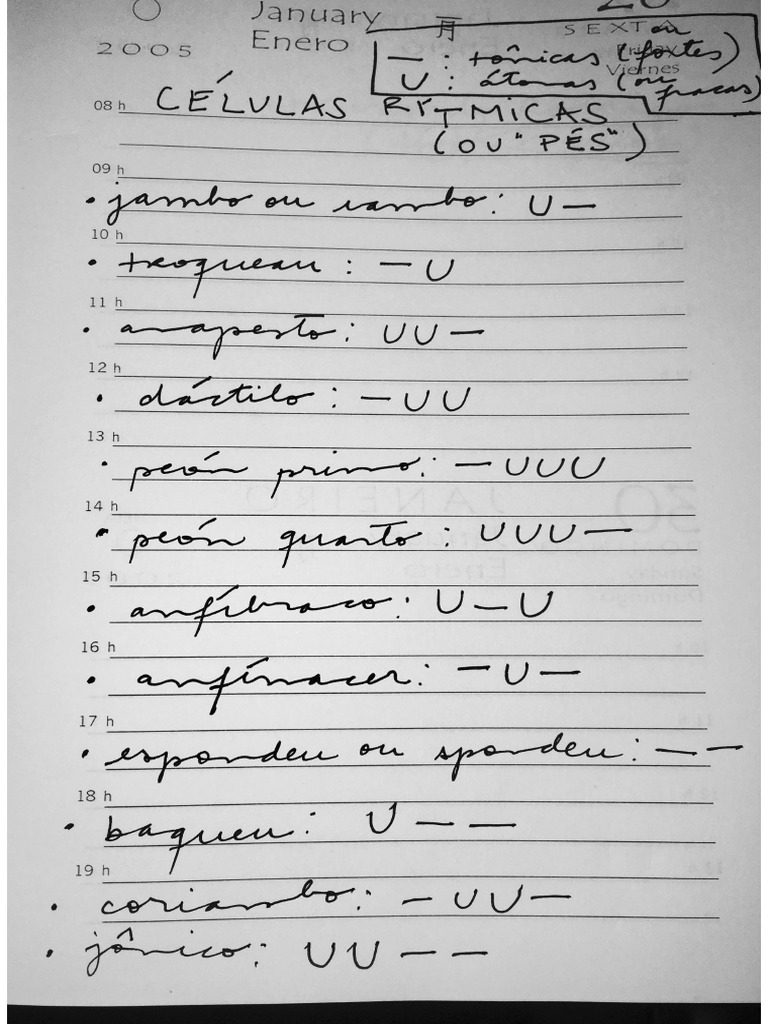 January
月
SEXTA
2005
Enero
Friday
Viernes
— : tônicas (ou fortes)
U : átonas (ou fracas)
08 h
CÉLULAS RÍTMICAS
(OU "PÉS")
09 h
• jambo ou iambo: U —
10 h
• troqueau : — U
11 h
• anapesto: UU —
12 h
• dáctilo : — UU
13 h
• peón primo: — UUU
14 h
• peón quarto : UUU —
15 h
• anfíbraco: U — U
16 h
• anfímacer: — U —
17 h
• espondeu ou spondeu: — —
18 h
• baqueu: U — —
19 h
• coriambo: — UU —
• jônico: UU — —